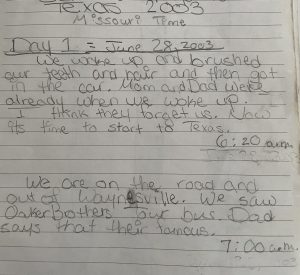 Texas 2003
Missouri Time
Day 1 = June 28, 2003
We woke up and brushed
our teeth and hair and then got
in the car. Mom and Dad were
already when we woke up.
I think they forget us. Now
its time to start to Texas.
6:20 a.m.
We are on the road and
out of Waynesville. We saw
Oaker Bothers tour bus. Dad
says that their famous.
7:00 a.m.